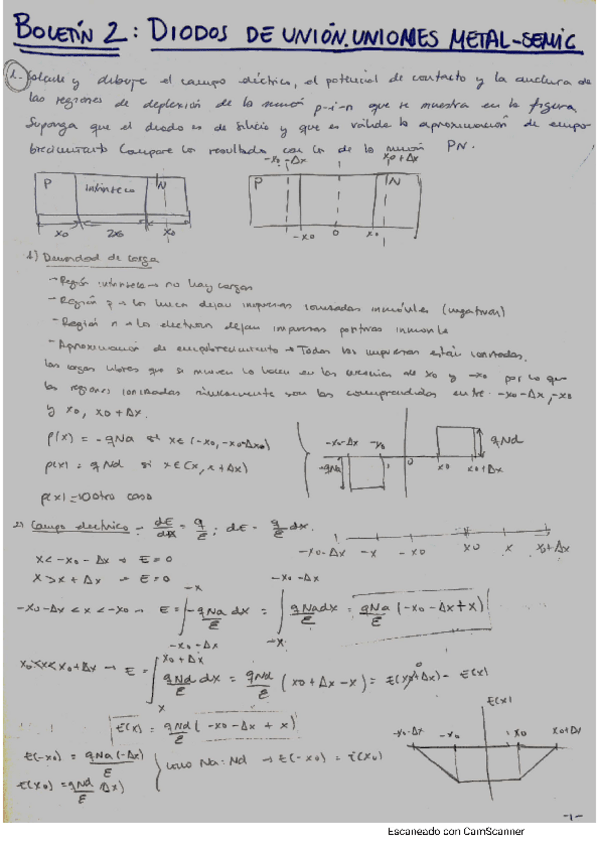 BOLETÍN 2: DIODOS DE UNIÓN. UNIONES METAL-SEMIC
1. Calcule y dibuje el campo eléctrico, el potencial de contacto y la anchura de
las regiones de deplexión de la unión p-i-n que se muestra en la figura.
Suponga que el diodo es de silicio y que es válida la aproximación de empo-
brecimiento. Compare los resultados con los de la unión PN.
-x0-Δx x0+Δx
P Intrínseco N P N
x0 2x0 x0 -x0 0 x0
1) Densidad de carga
- Región intrínseca → no hay cargas
- Región p → los huecos dejan impurezas ionizadas inmóviles (negativas)
- Región n → los electrones dejan impurezas positivas inmóviles
- Aproximación de empobrecimiento → Todas las impurezas están ionizadas.
Las cargas libres que se mueven lo hacen en las cercanías de x0 y -x0 por lo que
las regiones ionizadas únicamente son las comprendidas entre -x0-Δx, -x0
y x0, x0+Δx.
ρ(x) = -qNa si x∈(-x0, -x0-Δx0)
ρ(x) = qNd si x∈(x, x+Δx)
ρ(x) = 0 otro caso
-x0-Δx -x0 0 x0 x0+Δx
-qNa qNd
2) Campo eléctrico → dE/dx = q/ε ; dE = q/ε dx.
-x0-Δx -x -x0 x0 x x0+Δx
x < -x0-Δx → E=0
x > x+Δx → E=0
-x0-Δx < x < -x0 → E = ∫ -qNa/ε dx = ∫ qNa dx/ε = qNa/ε (-x0-Δx+x)
x0<x<x0+Δx → E = ∫ qNd/ε dx = qNd/ε (x0+Δx-x) = E(x0+Δx) - E(x)
E(x) = qNd/ε (-x0-Δx+x)
E(-x0) = qNa(-Δx)/ε
E(x0) = qNd/ε (Δx)
como Na=Nd → E(-x0) = E(x0)
E(x)
-x0-Δx -x0 x0 x0+Δx
-1-
Escaneado con CamScanner